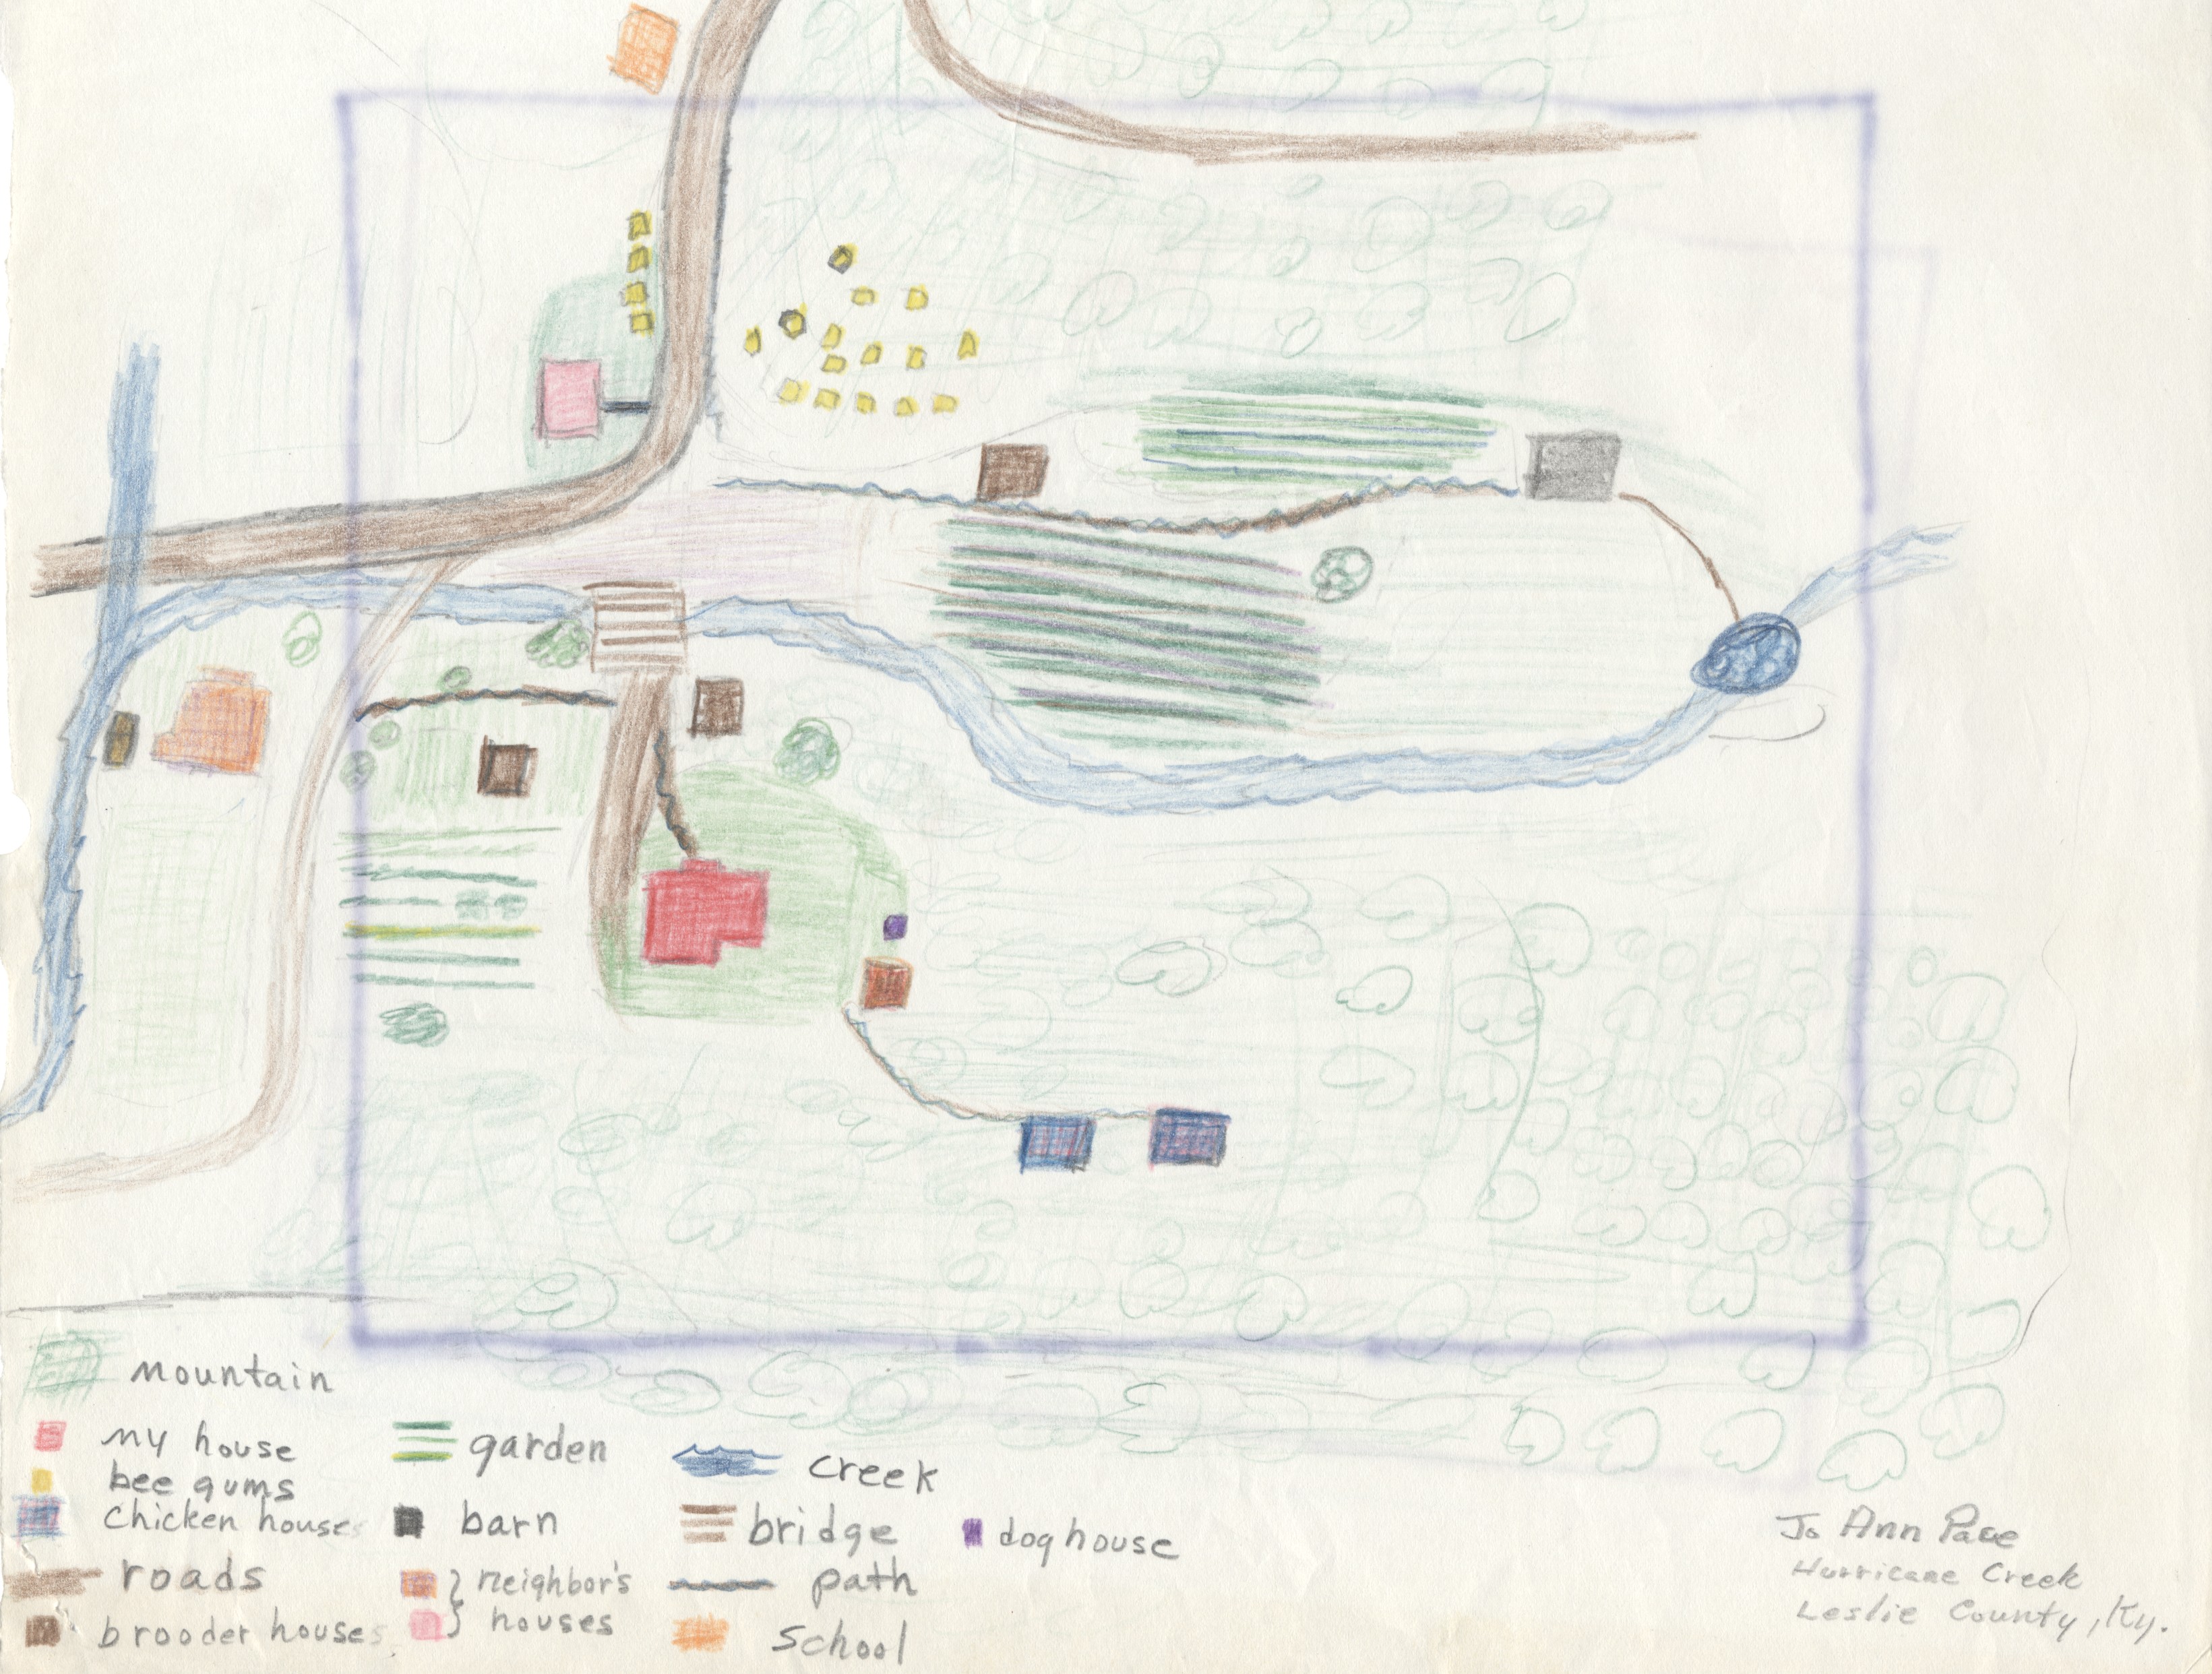 mountain
my house
bee gums
chicken houses
roads
brooder houses
garden
barn
neighbor's
houses
creek
bridge
path
school
doghouse
Jo Ann Pace
Hurricane Creek
Leslie County, Ky.